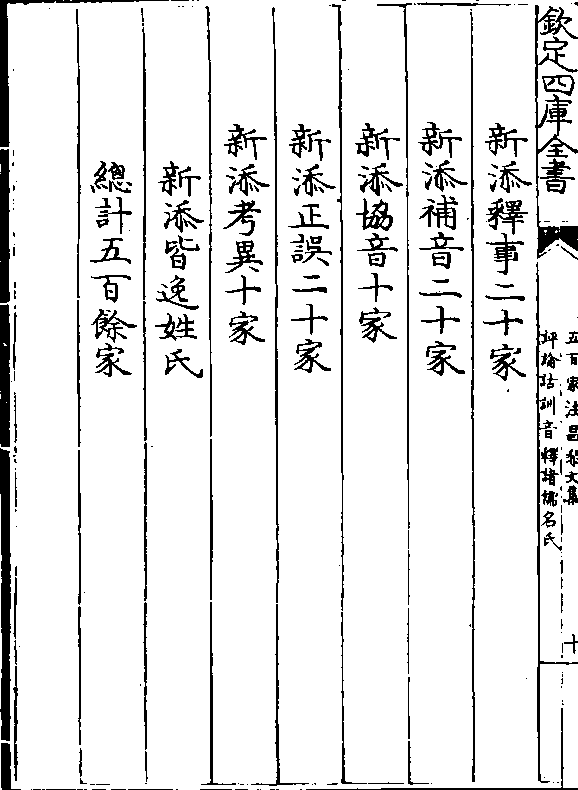 欽定四庫全書
五百家注昌黎文集
評論詁訓音釋諸儒名氏
十
新添釋事二十家
新添補音二十家
新添協音十家
新添正誤二十家
新添考異十家
新添皆逸姓氏
總計五百餘家